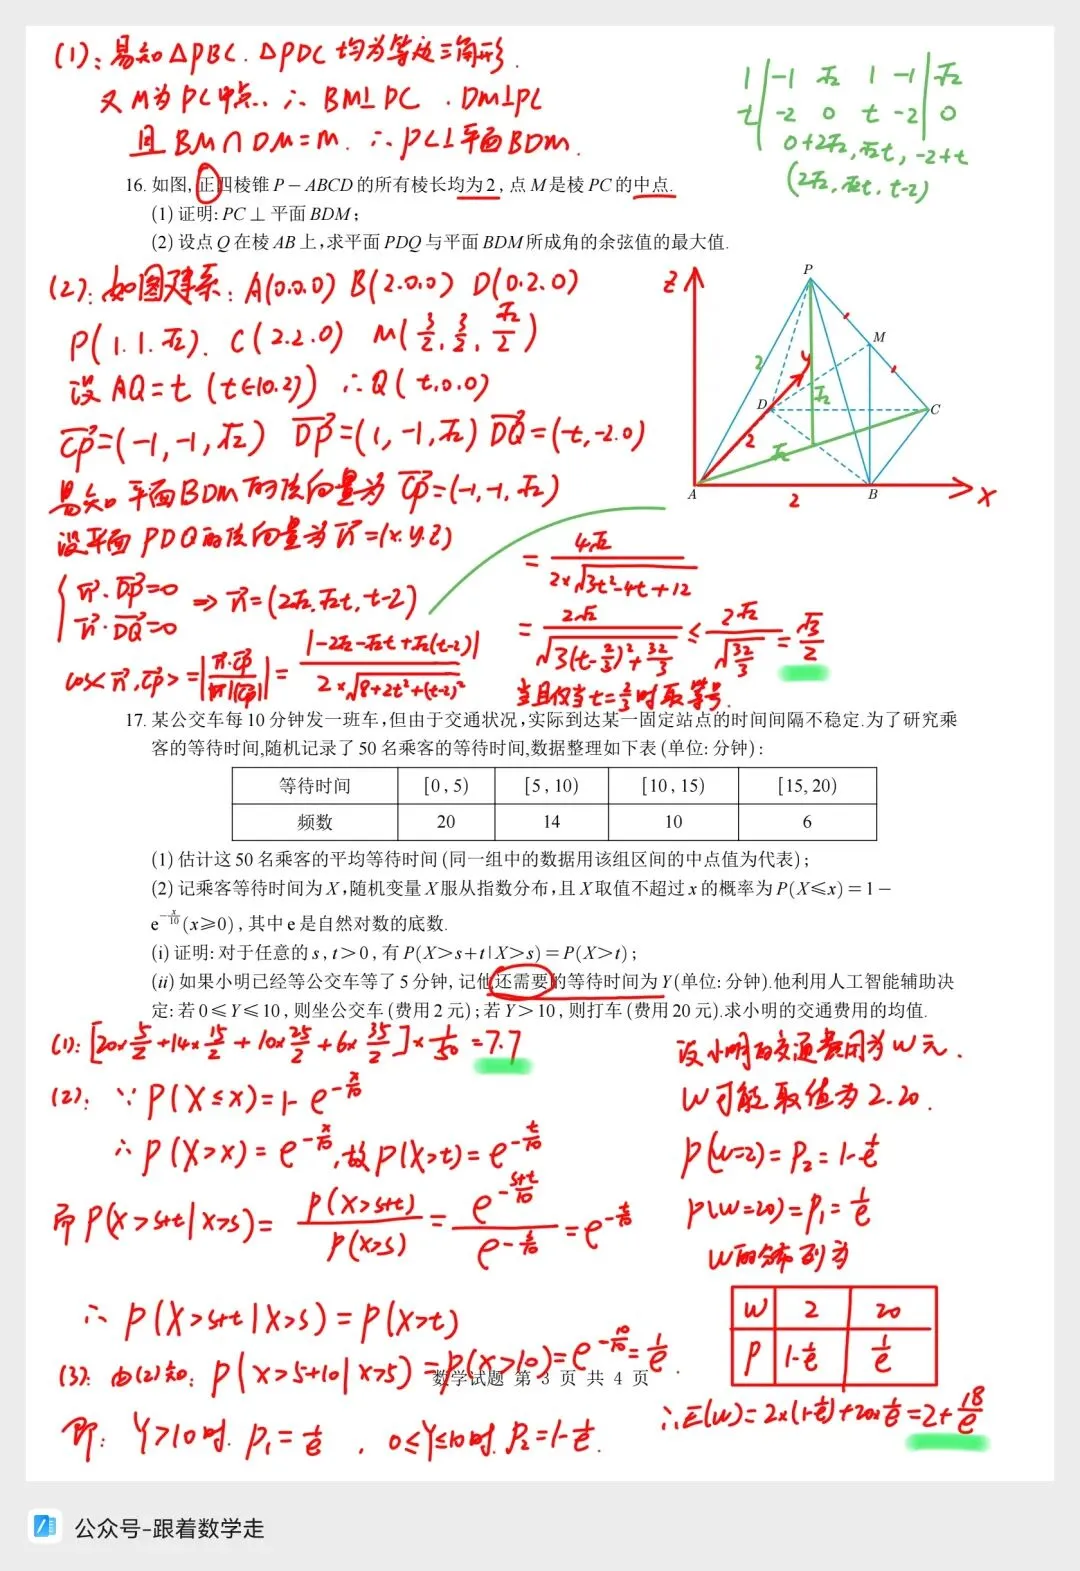 (1): 易知△PBC. △PDC 均为等边三角形.
又M为PC中点. ∴ BM⊥PC . DM⊥PC
且 BM∩DM=M. ∴ PC⊥平面BDM.
1 | -1 √2 1 -1 | √2
t | -2 0 t -2 | 0
0+2√2, √2t, -2+t
(2√2, √2t, t-2)
16. 如图, 正四棱锥 P-ABCD 的所有棱长均为2, 点 M 是棱 PC 的中点.
(1) 证明: PC⊥平面 BDM;
(2) 设点 Q 在棱 AB 上,求平面 PDQ 与平面 BDM 所成角的余弦值的最大值.
(2): 如图建系: A(0.0.0) B(2.0.0) D(0.2.0)
P(1.1.√2). C(2.2.0) M(3/2, 3/2, √2/2)
设 AQ=t (t∈[0.2]) ∴ Q(t,0,0)
CP=(-1,-1,√2) DP=(1,-1,√2) DQ=(-t,-2.0)
易知平面BDM的法向量为 CP=(-1,-1,√2)
设平面 PDQ的法向量为 n=(x.y.z)
{ n·DP=0
n·DQ=0 ⇒ n=(2√2,√2t,t-2)
cos<n,CP>=|n·CP/|n||CP||= |-2√2-√2t+√2(t-2)| / 2×√8+2t²+(t-2)²
= 4√2 / 2×√3t²-4t+12
= 2√2 / √3(t-2/3)²+32/3 ≤ 2√2 / √32/3 = √3/2
当且仅当 t=2/3 时取等号.
P
M
D
C
A
B
Z
y
x
2
√2
√2
2
2
17. 某公交车每 10 分钟发一班车,但由于交通状况,实际到达某一固定站点的时间间隔不稳定.为了研究乘
客的等待时间,随机记录了 50 名乘客的等待时间,数据整理如下表 (单位: 分钟) :
等待时间 [0, 5) [5, 10) [10, 15) [15, 20)
频数 20 14 10 6
(1) 估计这 50 名乘客的平均等待时间 (同一组中的数据用该组区间的中点值为代表) ;
(2) 记乘客等待时间为 X,随机变量 X 服从指数分布,且 X 取值不超过 x 的概率为 P(X≤x)=1-
e^{-x/10}(x≥0), 其中 e 是自然对数的底数.
(i) 证明: 对于任意的 s, t>0, 有 P(X>s+t|X>s)=P(X>t) ;
(ii) 如果小明已经等公交车等了 5 分钟, 记他还需要的等待时间为 Y(单位: 分钟).他利用人工智能辅助决
定: 若 0≤Y≤10, 则坐公交车 (费用 2 元) ; 若 Y>10, 则打车 (费用 20 元).求小明的交通费用的均值.
(1): [20×5/2+14×15/2+10×25/2+6×35/2]×1/50=7.7
(2): ∵ P(X≤x)=1-e^{-x/10}
∴ P(X>x)=e^{-x/10},故P(X>t)=e^{-t/10}
而P(X>s+t|X>s)= P(X>s+t)/P(X>s) = e^{-(s+t)/10}/e^{-s/10} = e^{-t/10}
∴ P(X>s+t|X>s)=P(X>t)
(3): 由(2)知: P(X>5+10|X>5)=P(X>10)=e^{-10/10}=1/e.
数学试题 第 3 页 共 4 页
即: Y>10时. P₁=1/e , 0≤Y≤10时. P₂=1-1/e.
设小明的交通费用为W元.
W可能取值为2.20.
P(W=2)=P₂=1-1/e
P(W=20)=P₁=1/e
W的分布列为
W 2 20
P 1-1/e 1/e
∴E(W)=2×(1-1/e)+20×1/e=2+18/e
公众号-跟着数学走